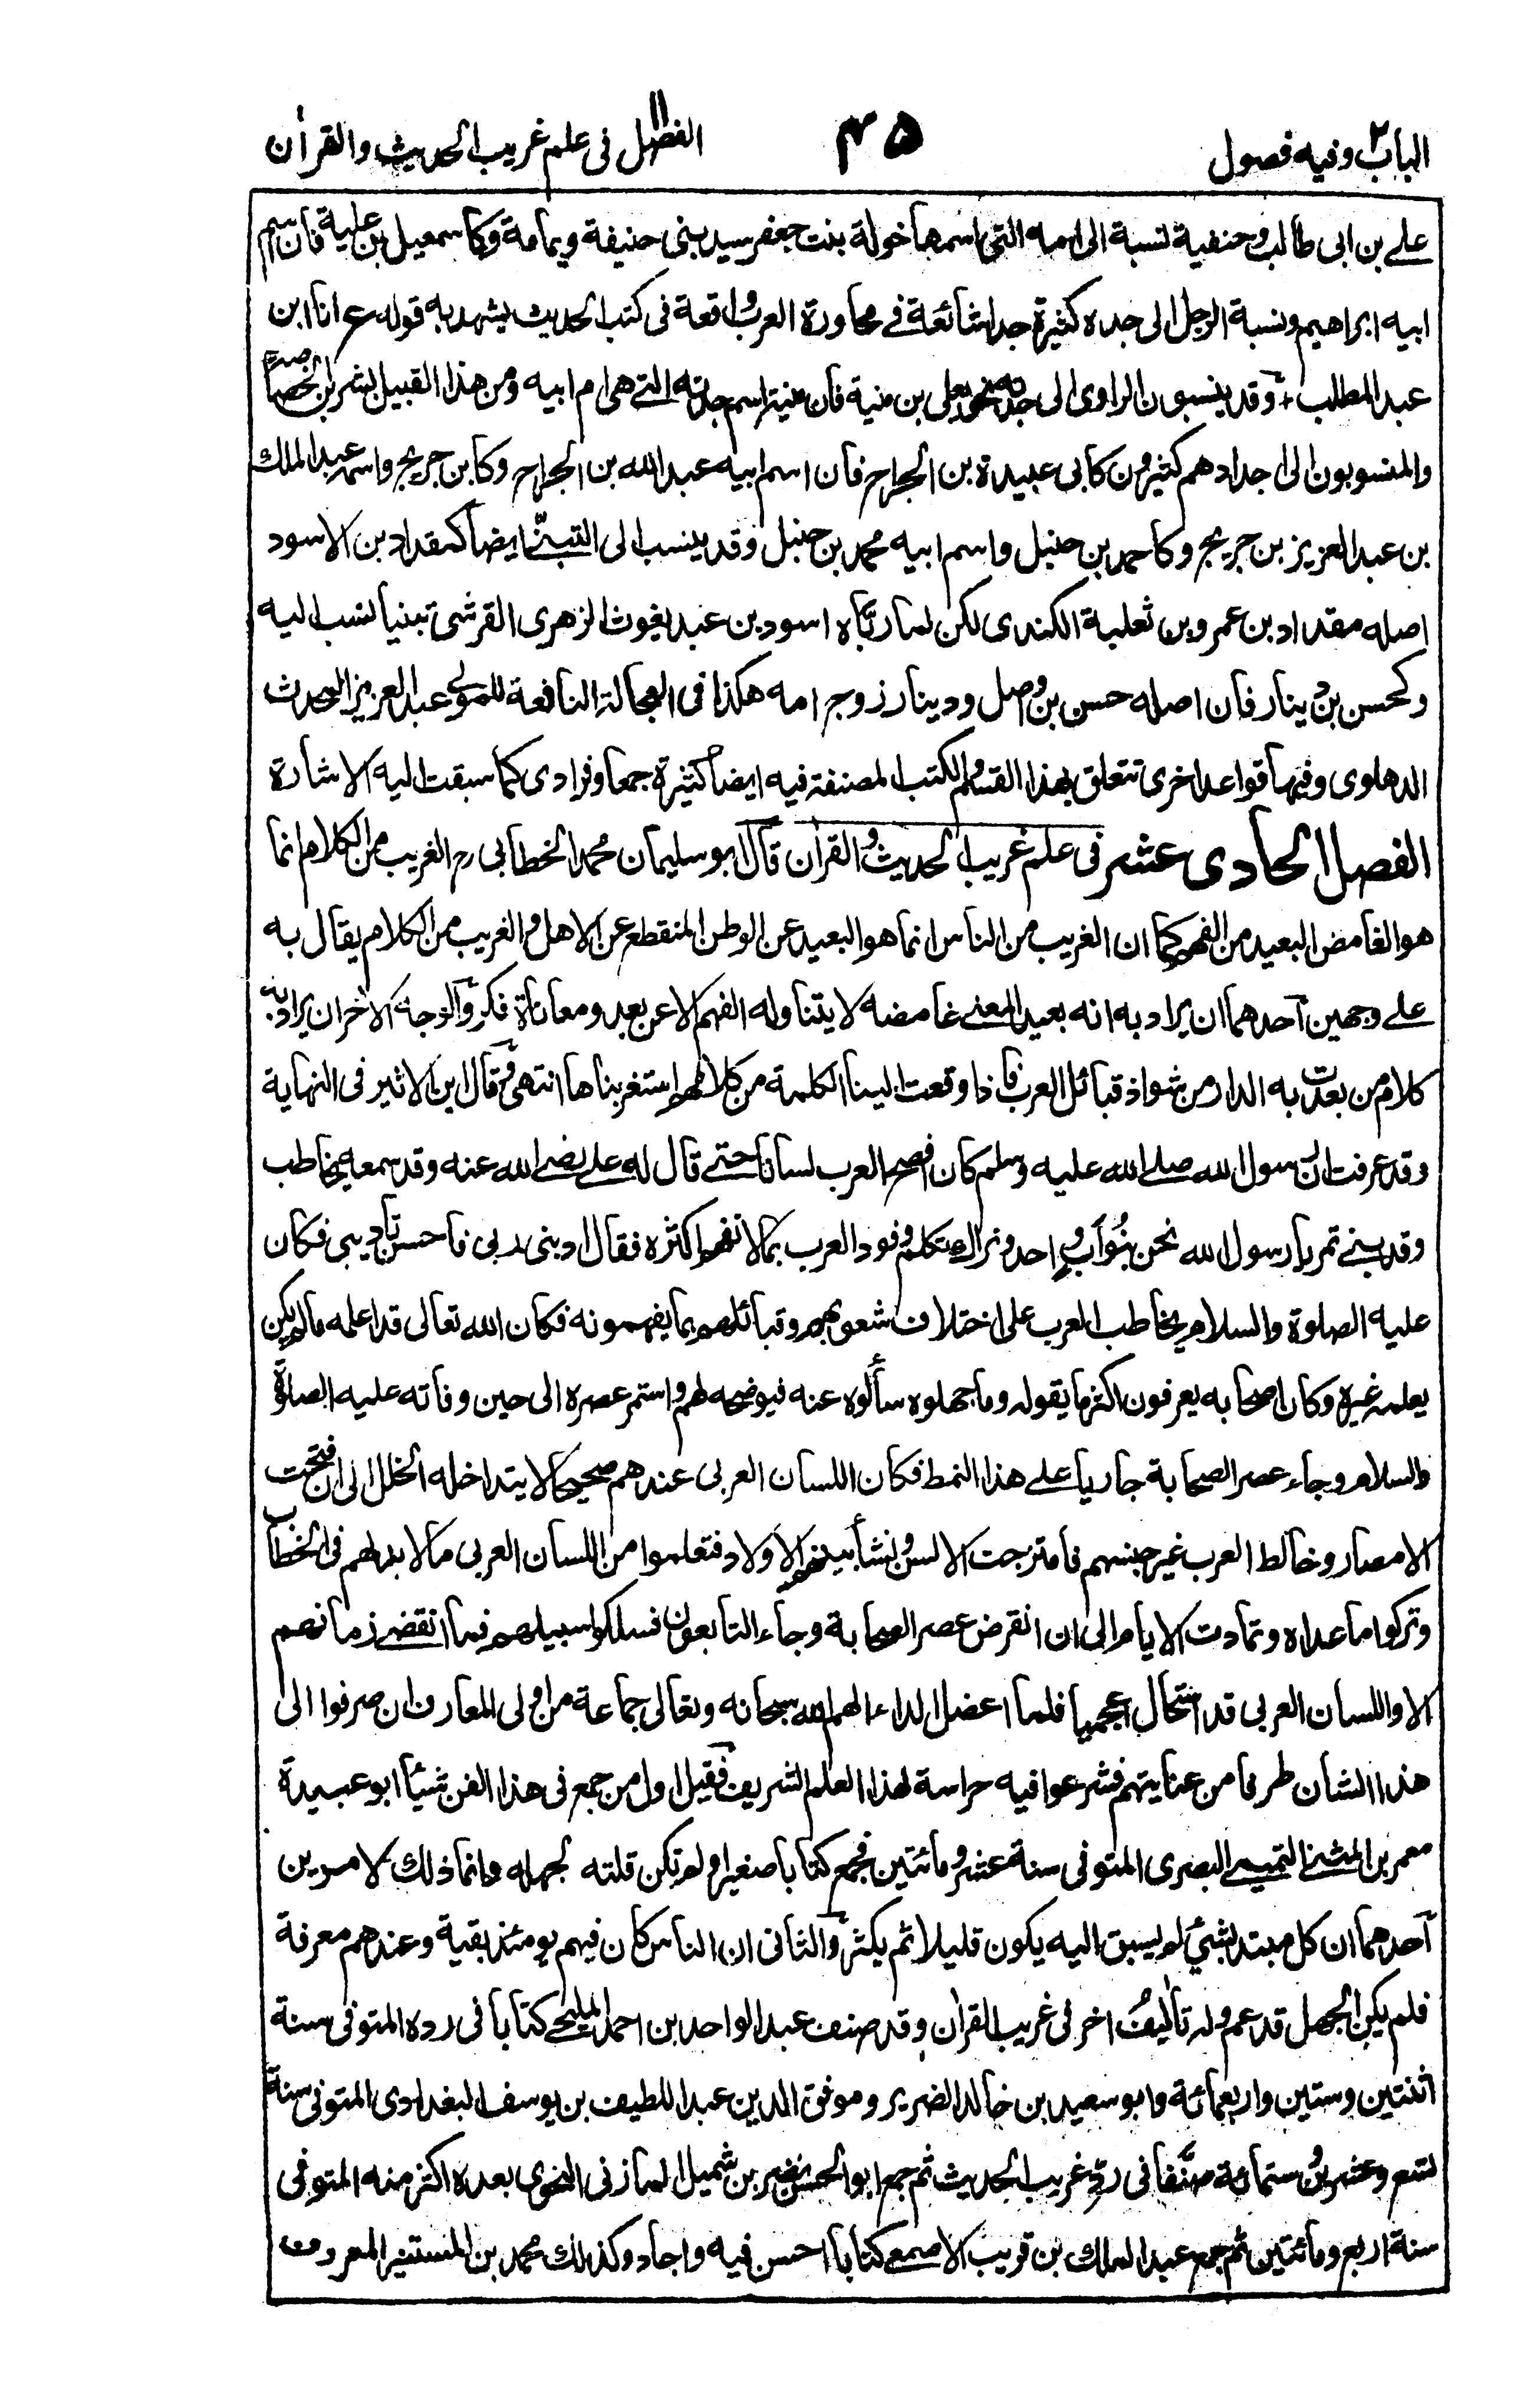 الباب ٢ وفيه فصول
٤٥
الفصل ١١ فى علم غريب الحديث والقرأن
على بن ابى طالب وحنفية نسبة الى امه التى اسمها خولة بنت جعفر سيد بنى حنيفة ويمامة وكاسمعيل بن علية فان اسم
ابيه ابراهيم ونسبة الرجل الى جده كثيرة جدا شائعة فى محاورة العرب واقعة فى كتب الحديث يشهد به قوله ع انا ابن
عبد المطلب + وقد ينسبون الراوى الى جدته نحو يعلى بن منية فان منية اسم جدته التى هى ام ابيه ومن هذا القبيل بشر بن الخصاصية
والمنسوبون الى اجدادهم كثيرون كابى عبيدة بن الجراح فان اسم ابيه عبد الله بن الجراح وكابن جريج واسمه عبد الملك
بن عبد العزيز بن جريج وكاحمد بن حنبل واسم ابيه محمد بن حنبل وقد ينسب الى التبنّى ايضا كمقداد بن الاسود
اصله مقداد بن عمرو بن ثعلبة الكندى لكن لما ربّاه اسود بن عبد يغوث الزهرى القرشى تبنيا نسب اليه
وكحسن بن دينار فان اصله حسن بن واصل ودينار زوج امه هكذا فى العجالة النافعة للمولى عبد العزيز المحدث
الدهلوى وفيها قواعد اخرى تتعلق بهذا القسم والكتب المصنفة فيه ايضا كثيرة جمعا وفرادى كما سبقت اليه الاشارة
الفصل الحادى عشر فى علم غريب الحديث والقرأن قال ابو سليمان محمد الخطابى رح الغريب من الكلام انما
هو الغامض البعيد من الفهم كما ان الغريب من الناس انما هو البعيد عن الوطن المنقطع عن الاهل والغريب من الكلام يقال به
على وجهين احدهما ان يراد به انه بعيد المعنى غامضه لا يتناوله الفهم الا عن بعد ومعاناة فكر والوجه الاخر ان يراد به
كلام من بعدت به الدار من شواذ قبائل العرب فاذا وقعت الينا الكلمة من كلامهم استغربناها انتهى وقال ابن الاثير فى النهاية
وقد عرفت ان رسول الله صلى الله عليه وسلم كان افصح العرب لسانا حتى قال له على رضى الله عنه وقد سمعه يخاطب
وفد بنى تمر يا رسول الله نحن بنُو اَبٍ واحد ونراك تكلم وفود العرب بما لا نفهم اكثره فقال ادبنى ربى فاحسن تاديبى فكان
عليه الصلوة والسلام يخاطب العرب على اختلاف شعوبهم وقبائلهم بما يفهمونه فكان الله تعالى قد اعلمه ما لم يكن
يعلمه غيره وكان اصحابه يعرفون اكثر ما يقوله وما جهلوه سألوه عنه فيوضحه لهم واستمر عصره الى حين وفاته عليه الصلوة
والسلام وجاء عصر الصحابة جاريا على هذا النمط فكان اللسان العربى عندهم صحيحا لا يتداخله الخلل الى ان فتحت
الامصار وخالط العرب غير جنسهم فامتزجت الالسن ونشأ بينهم الاولاد فتعلموا من اللسان العربى ما لا بد لهم فى الخطاب
وتركوا ما عداه وتمادت الايام الى ان انقرض عصر الصحابة وجاء التابعون فسلكوا سبيلهم فما انقضى زمانهم
الا واللسان العربى قد استحال اعجميا فلما اعضل الداء الهم الله سبحانه وتعالى جماعة من اولى المعارف ان صرفوا الى
هذا الشان طرفا من عنايتهم فشرعوا فيه حراسة لهذا العلم الشريف فقيل اول من جمع فى هذا الفن شيئا ابو عبيدة
معمر بن المثنى التميمى البصرى المتوفى سنة عشر ومائتين فجمع كتابا صغيرا ولم تكن قلته لجهله وانما ذلك لامرين
احدهما ان كل مبتدئ بشئ لم يسبق اليه يكون قليلا ثم يكثر والثانى ان الناس كان فيهم يومئذ بقية وعندهم معرفة
فلم يكن الجهل قد عم وله تأليفُ اخر فى غريب القرأن وقد صنف عبد الواحد بن احمد المليحى كتابا فى رده المتوفى سنة
اثنتين وستين واربعمائة وابو سعيد بن خالد الضرير وموفق الدين عبد اللطيف بن يوسف البغدادى المتوفى سنة
تسع وعشرين وستمائة صنَّفا فى ردِّ غريب الحديث ثم جمع ابو الحسن نضر بن شميل المازنى النحوى بعده اكثر منه المتوفى
سنة اربع ومائتين ثم جمع عبد الملك بن قريب الاصمعى كتابا احسن فيه واجاد وكذلك محمد بن المستنير المعروف